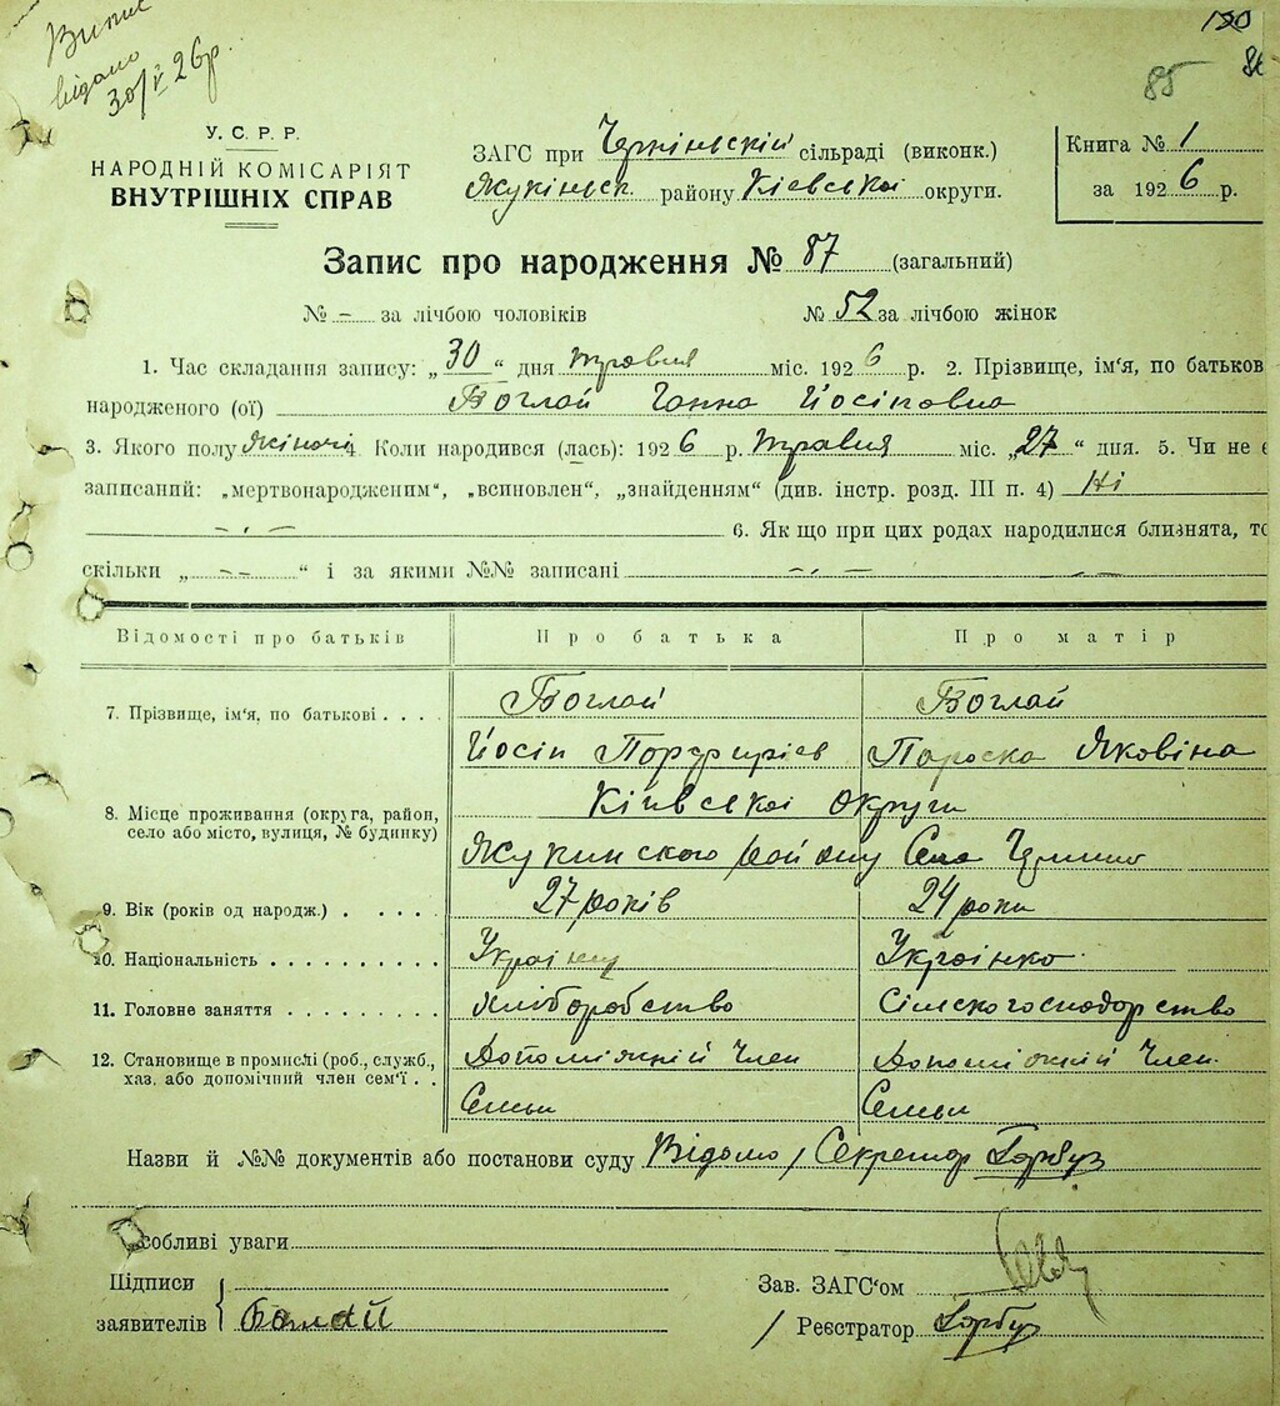 Випис
видано
30/V 26р.
150
85 86
У. С. Р. Р.
НАРОДНІЙ КОМІСАРІЯТ
ВНУТРІШНІХ СПРАВ
ЗАГС при сільраді (виконк.)
району Київської округи.
Книга № 1
за 1926 р.
Запис про народження № 87 (загальний)
№ - за лічбою чоловіків № 52 за лічбою жінок
1. Час складання запису: „30“ дня травня міс. 1926 р. 2. Прізвище, ім'я, по батьков
народженого (ої) Боглай Ганна Йосіповна
3. Якого полу жіночі 4. Коли народився (лась): 1926 р. травня міс. „27“ дня. 5. Чи не є
записаний: „мертвонародженим“, „всиновлен“, „знайденням“ (див. інстр. розд. III п. 4) Ні
6. Як що при цих родах народилися близнята, то
скільки „ -- “ і за якими №№ записані
Відомості про батьків Про батька Про матір
7. Прізвище, ім'я, по батькові . . . . Боглай Боглай
Йосіп Порфиріев Параска Яковіна
8. Місце проживання (округа, район, Київської округи
село або місто, вулиця, № будинку) району Село
9. Вік (років од народж.) . . . . . 27 років 24 роки
10. Національність . . . . . . . . . . Українец Українка
11. Головне заняття . . . . . . . . . Хліборобство Сільскогосподарство
12. Становище в промислі (роб., служб., Допоміжній Член Допоміжній Член
хаз. або допомічний член сем'ї . . Семьи Семьи
Назви й №№ документів або постанови суду Відомо / Секретар Гарбуз
Особливі уваги
Підписи Зав. ЗАГС'ом
заявителів / Реєстратор Гарбуз